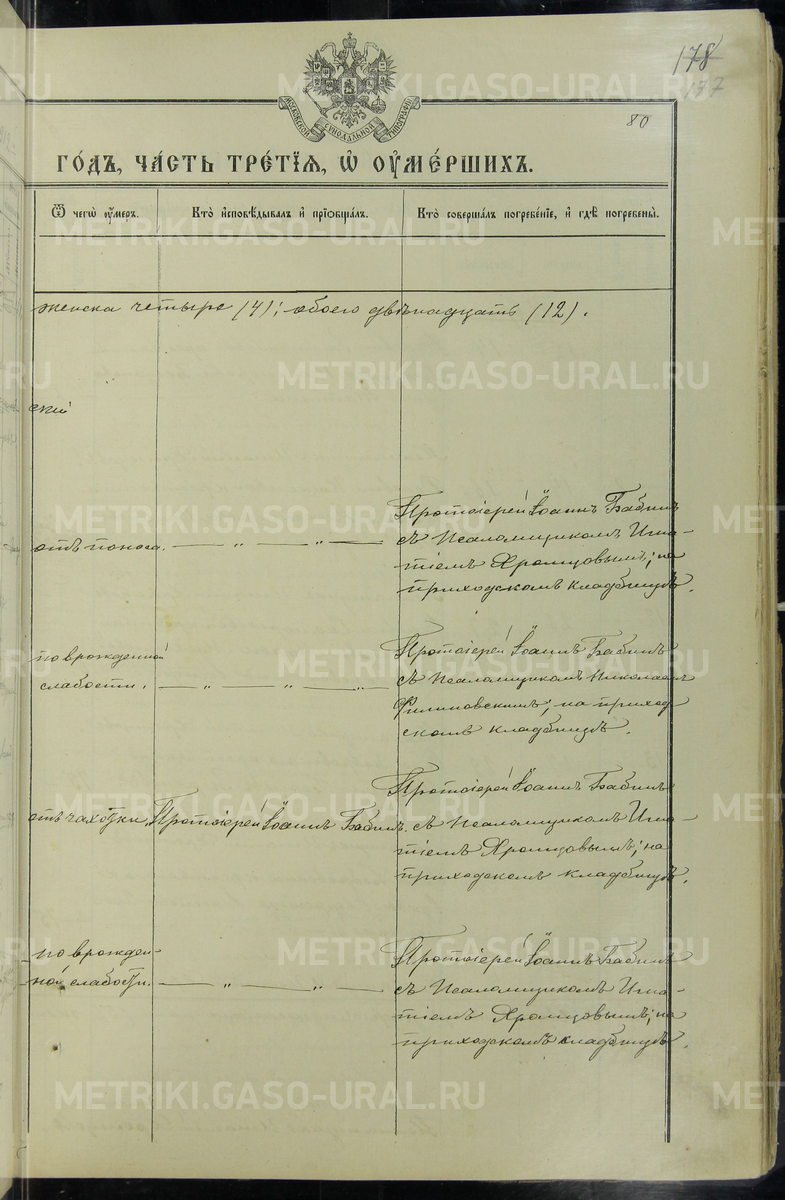 178
137
МОСКОВСКОЙ СѴНОДАЛЬНОЙ ТИПОГРАФІИ
80
ГО́ДЪ, ЧА́СТЬ ТРЕ́ТІѦ, Ѡ҆ ОУ҆МЕ́РШИХЪ.
Ѿ чегѡ̀ оу҆́меръ.
Кто̀ и҆сповѣ́дывалъ и҆ прїѻбща́лъ.
Кто̀ соверша́лъ погребе́нїе, и҆ гдѣ̀ погребены̀.
женска четыре (4); обоего двѣнадцать (12).
скій
отъ поноса.
Протоіерей Іоаннъ Бабинъ
съ Псаломщикомъ Игна-
тіемъ Хромцовымъ; на
приходскомъ кладбищѣ.
по врожденной
слабости.
Протоіерей Іоаннъ Бабинъ
съ Псаломщикомъ Николаемъ
Филиповскимъ; на приход
скомъ кладбищѣ.
отъ чахотки.
Протоіерей Іоаннъ Бабинъ.
Протоіерей Іоаннъ Бабинъ
съ Псаломщикомъ Игна-
тіемъ Хромцовымъ; на
приходскомъ кладбищѣ.
по врожден-
ной слабости.
Протоіерей Іоаннъ Бабинъ
съ Псаломщикомъ Игна-
тіемъ Хромцовымъ; на
приходскомъ кладбищѣ.
METRIKI.GASO-URAL.RU